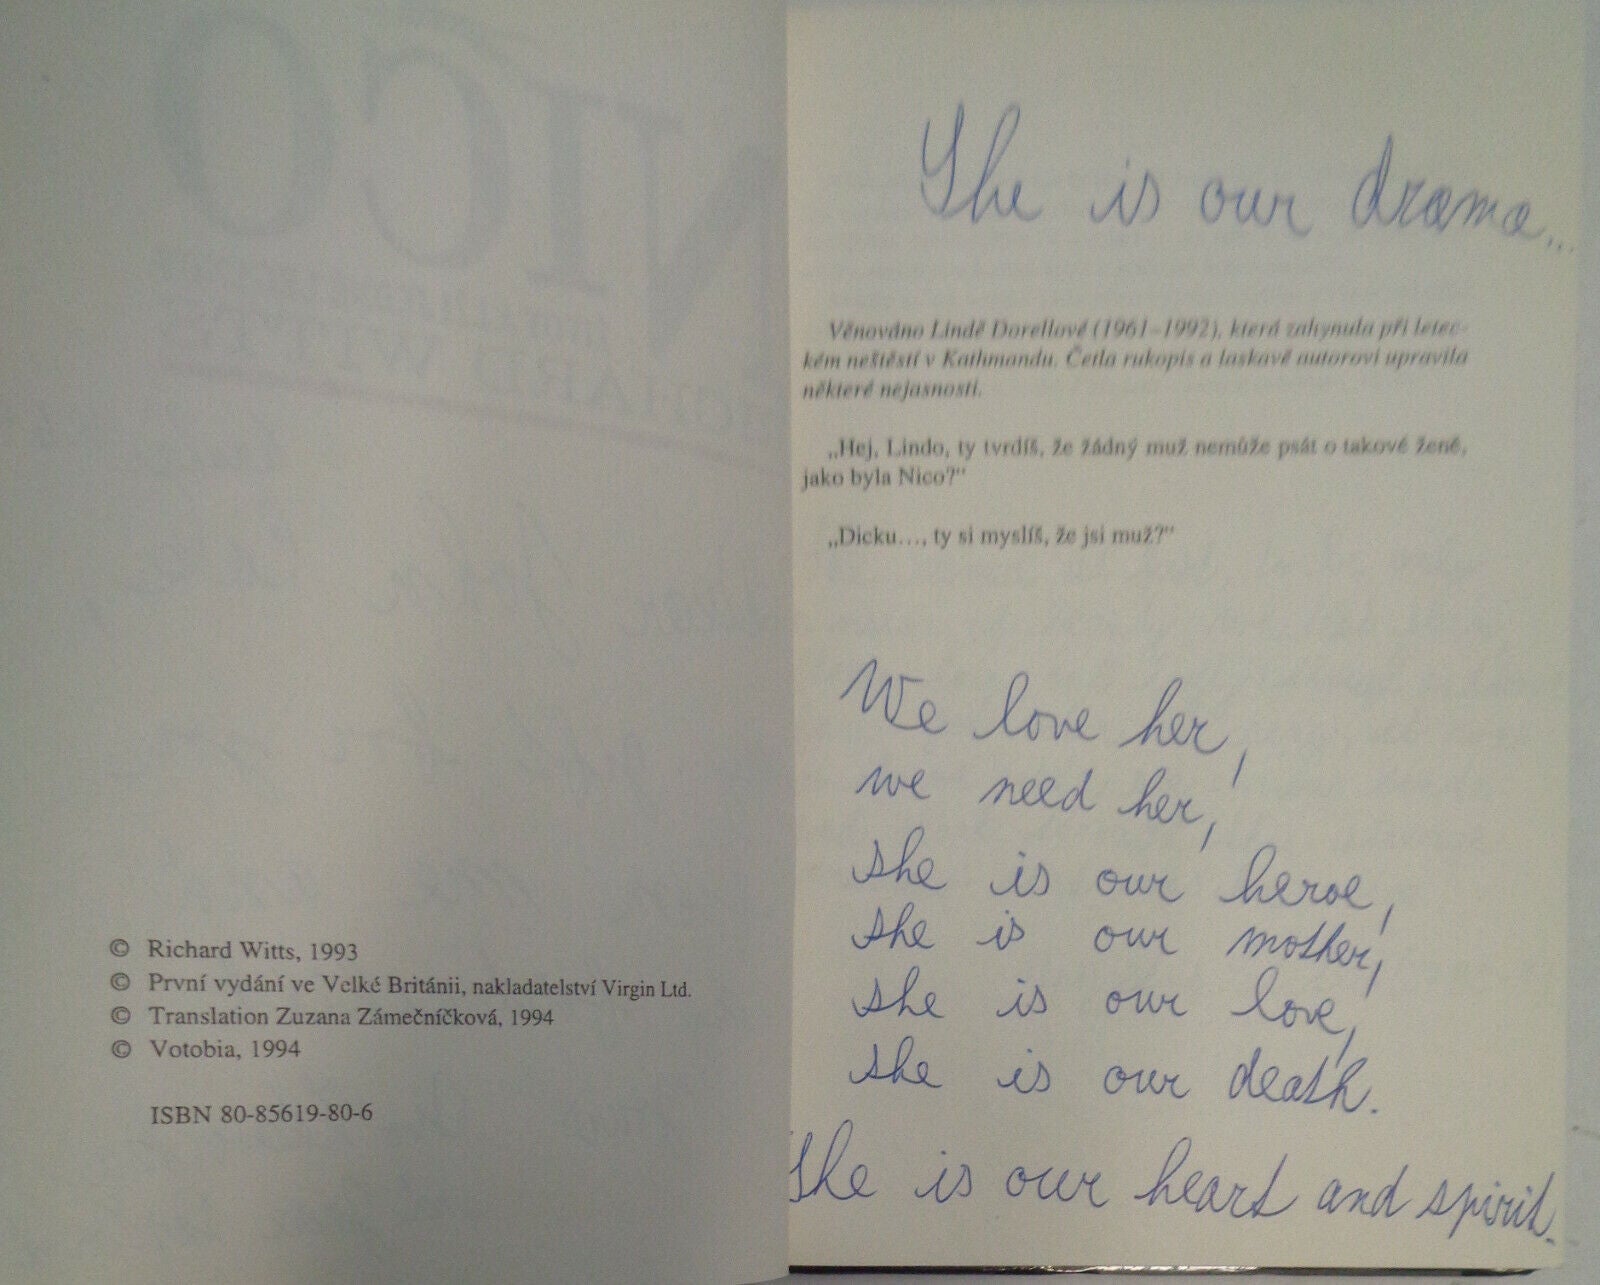 © Richard Witts, 1993
© První vydání ve Velké Británii, nakladatelství Virgin Ltd.
© Translation Zuzana Zámečníčková, 1994
© Votobia, 1994
ISBN 80-85619-80-6
She is our drama...
Věnováno Lindě Dorellové (1961–1992), která zahynula při letec-
kém neštěstí v Kathmandu. Četla rukopis a laskavě autorovi upravila
některé nejasnosti.
„Hej, Lindo, ty tvrdíš, že žádný muž nemůže psát o takové ženě,
jako byla Nico?“
„Dicku..., ty si myslíš, že jsi muž?“
We love her,
we need her,
she is our heroe,
she is our mother,
she is our love,
she is our death.
She is our heart and spirit.